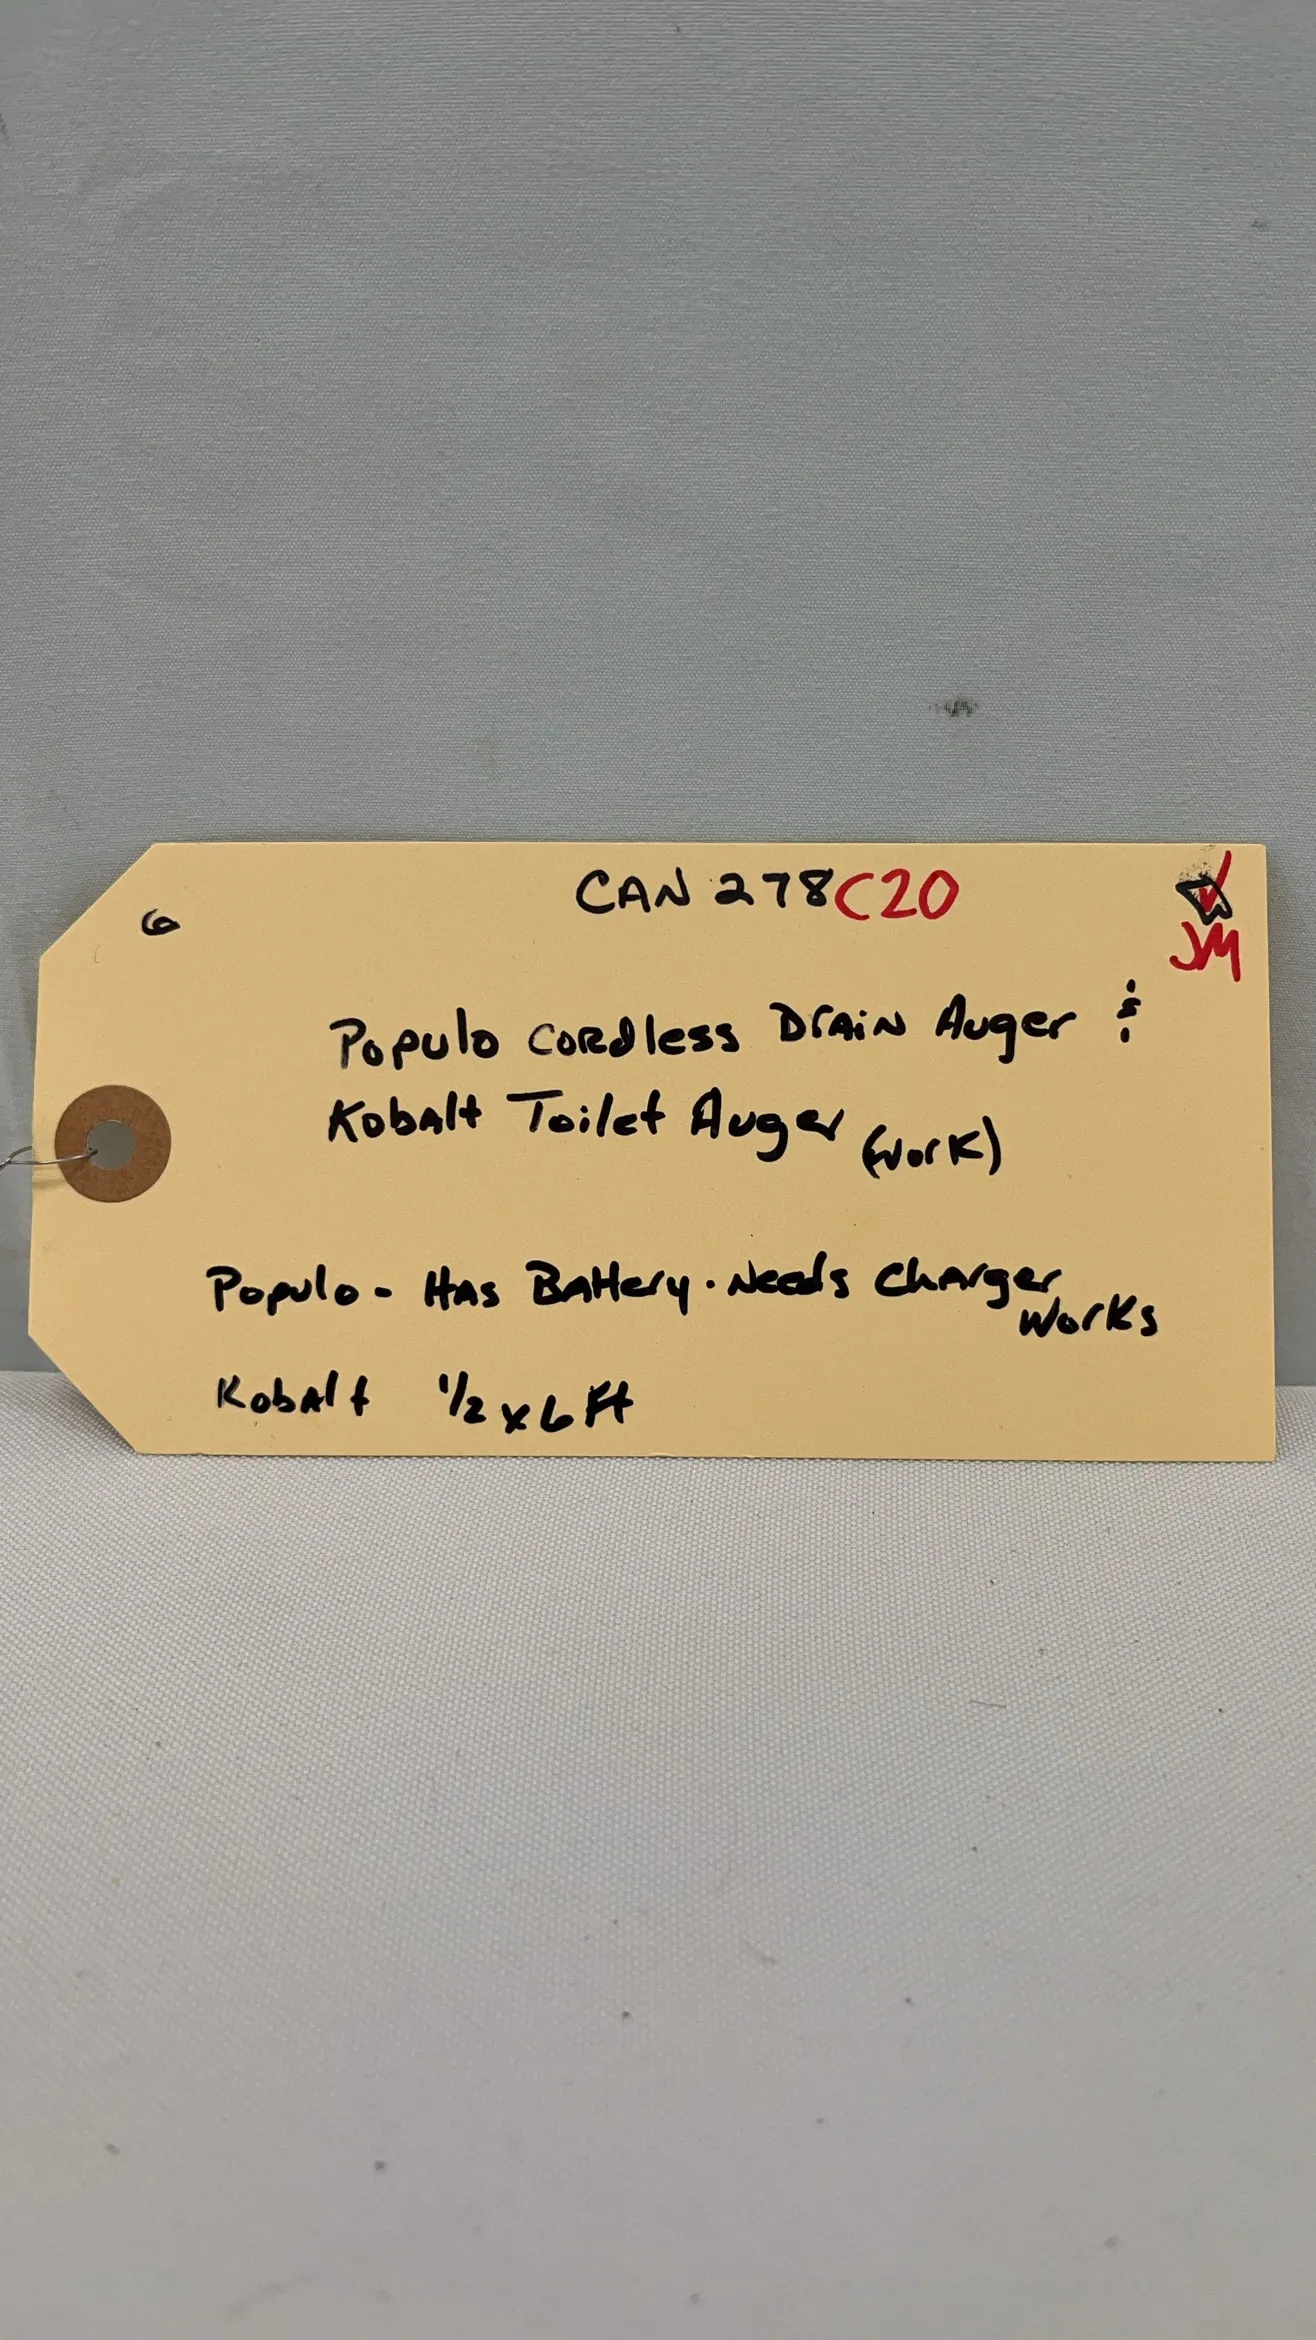 6
CAN 278C20
JM
Populo Cordless Drain Auger &
Kobalt Toilet Auger (Work)
Populo - Has Battery. Needs Charger
Works
Kobalt 1/2 x 6 Ft